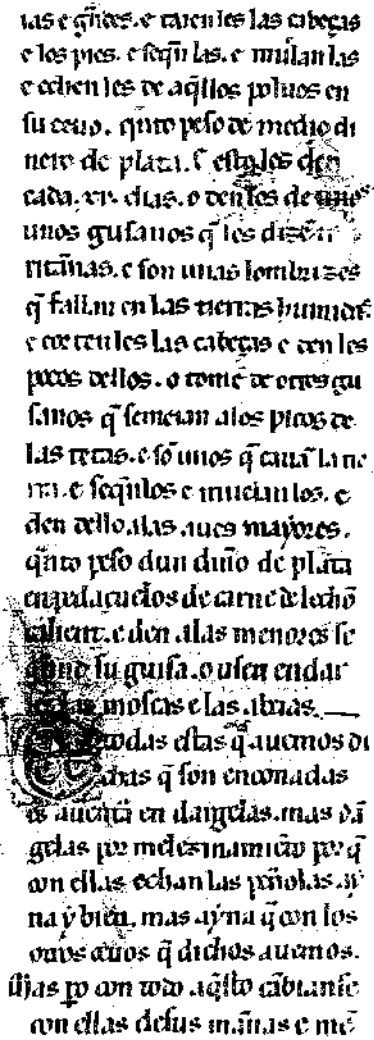 uas e gñdes. e taien les las cabeças
e los pies. e seqñ las. e muelan las
e echen les de aq̃llos poluos en
su ceuo. q̃nto peso de medio di
nero de plata. E esto les den
cada. xv. dias. o den les de unos
unos gusanos q̃ les dizen
e son unas lombrizes
q̃ fallan en las tierras humidas.
e corten les las cabeças e den les
pocos dellos. o tomẽ de otros gu
sanos q̃ semeian alos picos de
las tetas. e sõ unos q̃ cauã la tie
rra. e seq̃nlos e muelan los. e
den dello alas aues mayores.
q̃nto peso dun diño de plata
enpalaçuelos de carne de lechõ
caliente. e den alas menores se
gund su guisa. o usen endar
les las moscas e las abeias.
todas estas q̃ auemos di
chas q̃ son enconadas
es en dargelas. mas dã
gelas por melezinamiẽto por q̃
con ellas echan las peñolas ay
na y bien. mas ayna q̃ con los
otros ceuos q̃ dichos auemos.
Mas po con todo aq̃sto cãbianse
con ellas desus mañas e me